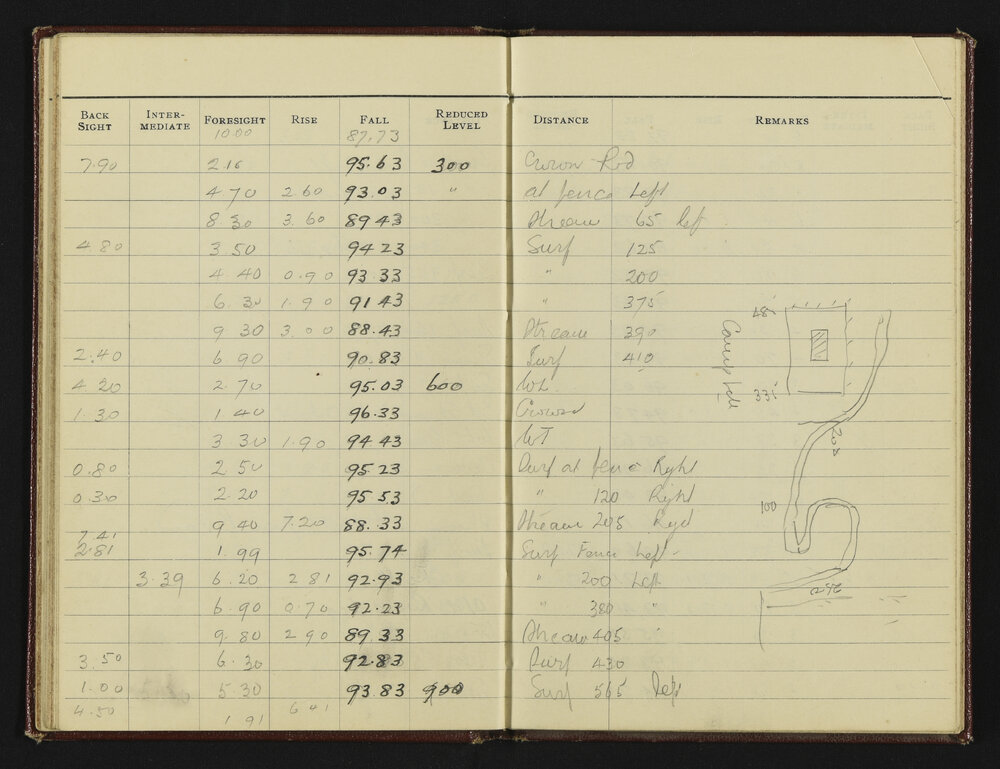 BACK SIGHT INTER-MEDIATE FORESIGHT RISE FALL REDUCED LEVEL DISTANCE REMARKS
10.00 87.73
7.90 2 16 95.63 300 Crown Rod
4 70 2 60 93.03 " at fence Left
8 30 3.60 89 43 Stream 65 left
4 80 3.50 94 23 Surf 125
4 40 0.90 93.33 " 200
6 30 1.90 91 43 " 375
9 30 3.00 88.43 Stream 390
2.40 6 90 90.83 Surf 410
4 20 2 70 95.03 600 WL
1.30 1 40 96.33 Crown
3 30 1.90 94 43 WT
0.80 2 50 95 23 Surf at fence Right
0.30 2 20 95 53 " 120 Right
9 40 7.20 88.33 Stream 205
7.41
2.81 1.99 95.74 Surf Fence Left
3.39 6.20 2 81 92.93 " 200 Left
6.90 0.70 92.23 " 380 "
9.80 2 90 89 33 Stream 405 "
3.50 6.30 92.83 Surf 430
1.00 5.30 93.83 900 Surf 565 left
4.50 1 91 6 41
48'
Camp Site
33'
208
100